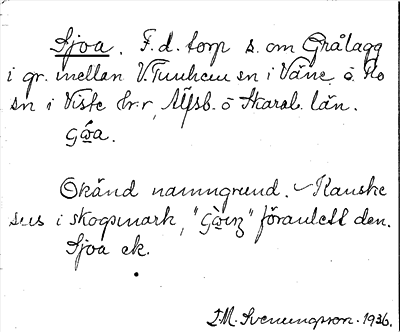 Sjoa. F.d. torp s. om Grålagg
i gr. mellan V. Tunhem sn i Väne o. Ro
sn i Viste hr, Älfsb. o Skarab. län.
Okänd namngrund. Kanske
sus i skogsmark, föranlett den.
Sjoa ek.
Svenungsson. 1936.